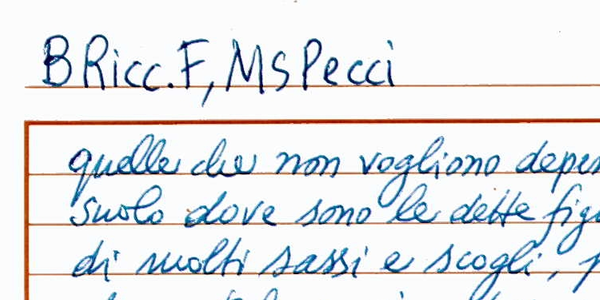 B Ricc. F, Ms Pecci
quelle che non vogliono
suolo dove sono le dette
di molti sassi e scogli,